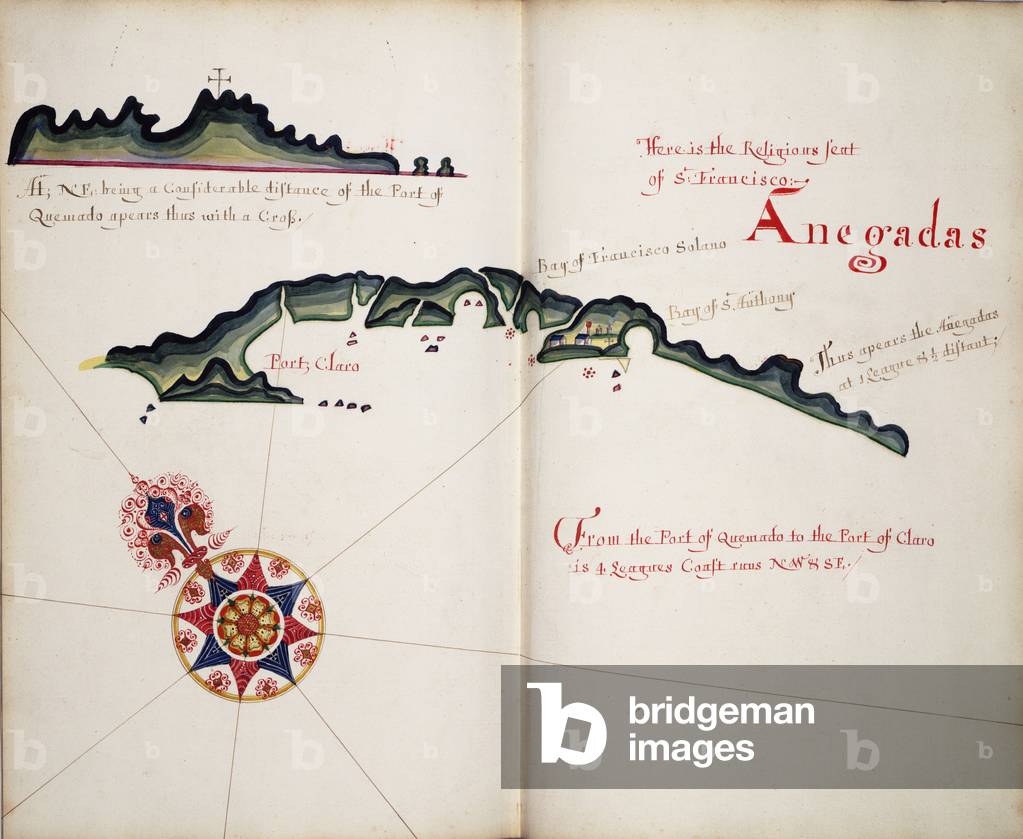 At, N:E, being a Considerable distance of the Port of
Quemado apears thus with a Cross.
Here is the Religious seat
of St: Francisco:
Anegadas
Bay of Francisco Solano
Bay of St. Anthony
Thus apears the Anegadas
at 1 League & ½ distant;
Port, Claro
From the Port of Quemado to the Port of Claro
is 4 Leagues Coast runs NW & SE.
bridgeman
images